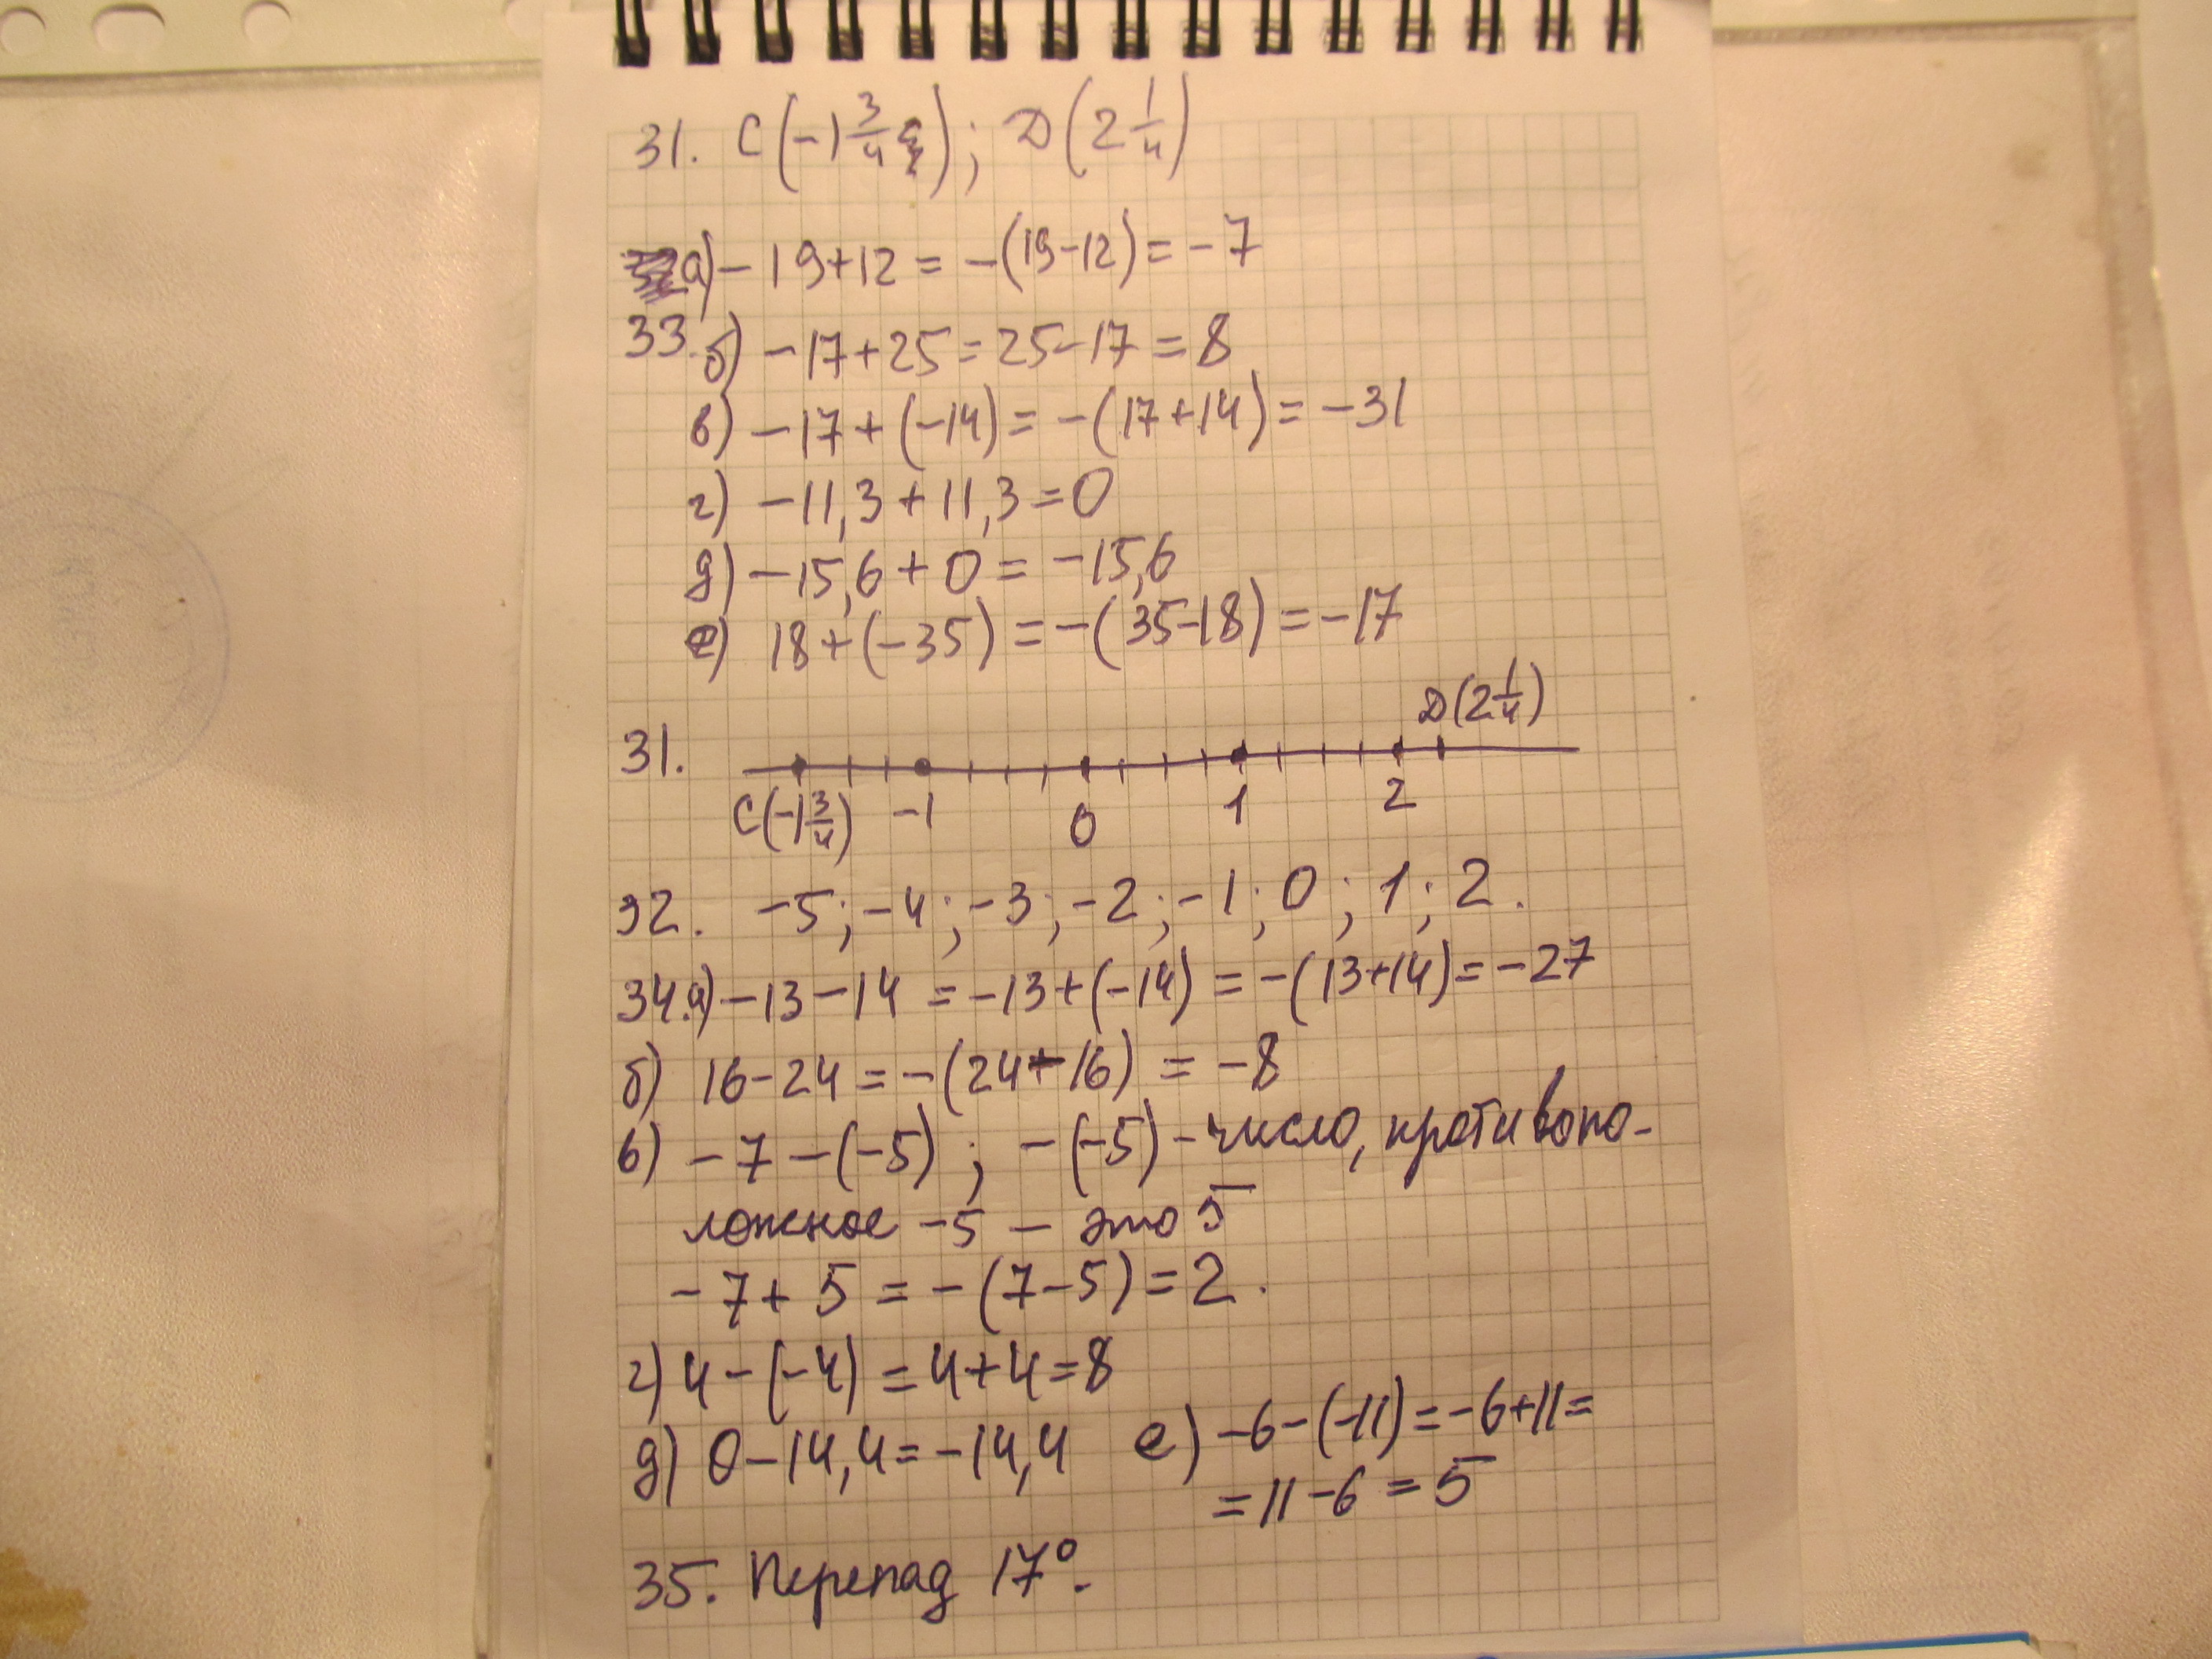 31. C(-1 3/4); D(2 1/4)
а) - 19+12 = -(19-12) = -7
33. б) -17+25=25-17=8
в) -17+(-14)=-(17+14)=-31
г) -11,3+11,3=0
д) -15,6+0=-15,6
е) 18+(-35)=-(35-18)=-17
D(2 1/4)
31.
C(-1 3/4) -1 0 1 2
32. -5; -4; -3; -2; -1; 0; 1; 2.
34.а) -13-14 = -13+(-14) = -(13+14)=-27
б) 16-24=-(24-16) = -8
в) -7-(-5) ; -(-5) - число, противопо-
ложное -5 - это 5
-7+5=-(7-5)=2.
г) 4-(-4)=4+4=8
д) 0-14,4=-14,4 е) -6-(-11)=-6+11=
=11-6=5
35. Перепад 17°.